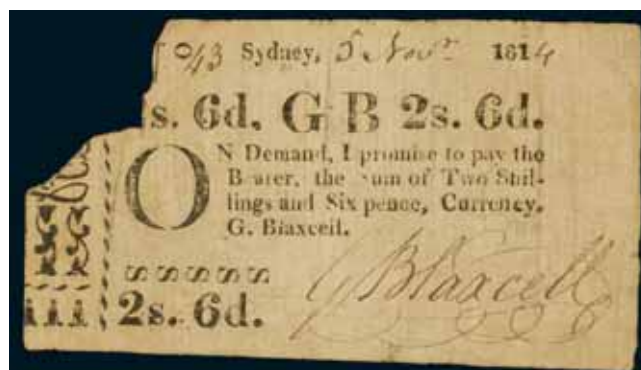 No 43 Sydney, 5 Novr 1814
s. 6d. G B 2s. 6d.
ON Demand, I promise to pay the
Bearer, the sum of Two Shil-
lings and Six pence, Currency.
G. Blaxcell.
2s. 6d.
G Blaxcell